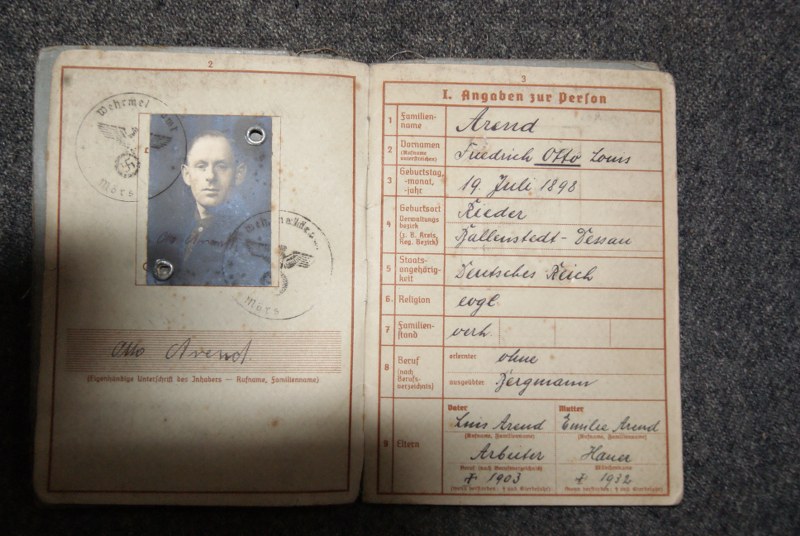 2
Wehrmel
Mörs
Wehrmeldea
Mörs
Otto Arend
(Eigenhändige Unterschrift des Inhabers — Rufname, Familienname)
3
I. Angaben zur Person
1 Familien-
name
Arend
2 Vornamen
(Rufname
unterstreichen)
Friedrich Otto Louis
3 Geburtstag,
-monat,
-jahr
19. Juli 1898
4 Geburtsort
Verwaltungs-
bezirk
(z. B. Kreis,
Reg. Bezirk)
Rieder
Ballenstedt-Dessau
5 Staats-
angehörig-
keit
Deutsches Reich
6 Religion
evgl.
7 Familien-
stand
verh.
8 Beruf
(nach
Berufs-
verzeichnis)
erlernter ohne
ausgeübter Bergmann
9 Eltern
Vater
Luis Arend
(Rufname, Familienname)
Arbeiter
Beruf (nach Berufsverzeichnis)
1903
Mutter
Emilie Arend
(Rufname, Familienname)
Hauer
Mädchenname
1932